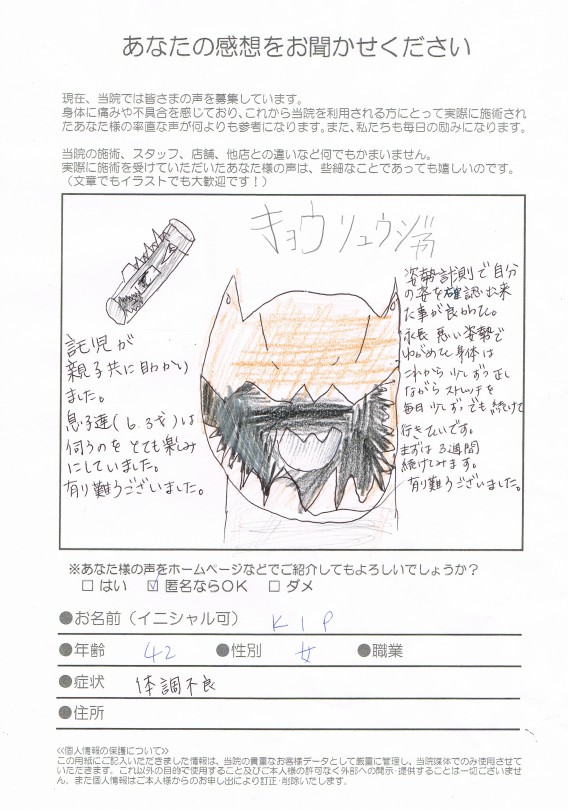 あなたの感想をお聞かせください
現在、当院では皆さまの声を募集しています。
身体に痛みや不具合を感じており、これから当院を利用される方にとって実際に施術され
たあなた様の率直な声が何よりも参考になります。また、私たちも毎日の励みになります。
当院の施術、スタッフ、店舗、他店との違いなど何でもかまいません。
実際に施術を受けていただいたあなた様の声は、些細なことであっても嬉しいのです。
（文章でもイラストでも大歓迎です！）
キョウリュウジャー
託児が
親子共に助かり
ました。
息子達(6.3才)は
伺うのをとても楽しみ
にしていました。
有り難うございました。
姿勢計測で自分
の姿を確認出来
た事が良かった。
永長 悪い姿勢で
ゆがめてた身体は
これから少しずつ正し
ながらストレッチを
毎日少しずつでも続けて
行きたいです。
まずは3週間
続けてみます。
有り難うございました。
※あなた様の声をホームページなどでご紹介してもよろしいでしょうか？
□ はい ☑ 匿名ならOK □ ダメ
●お名前（イニシャル可） K I P
●年齢 42 ●性別 女 ●職業
●症状 体調不良
●住所
≪個人情報の保護について≫
この用紙にご記入いただきました情報は、当院の貴重なお客様データとして厳重に管理し、当院媒体でのみ使用させて
いただきます。これ以外の目的で使用すること及びご本人様の許可なく外部への開示・提供することは一切ございませ
ん。また個人情報はご本人様からのお申し出により訂正・削除いたします。